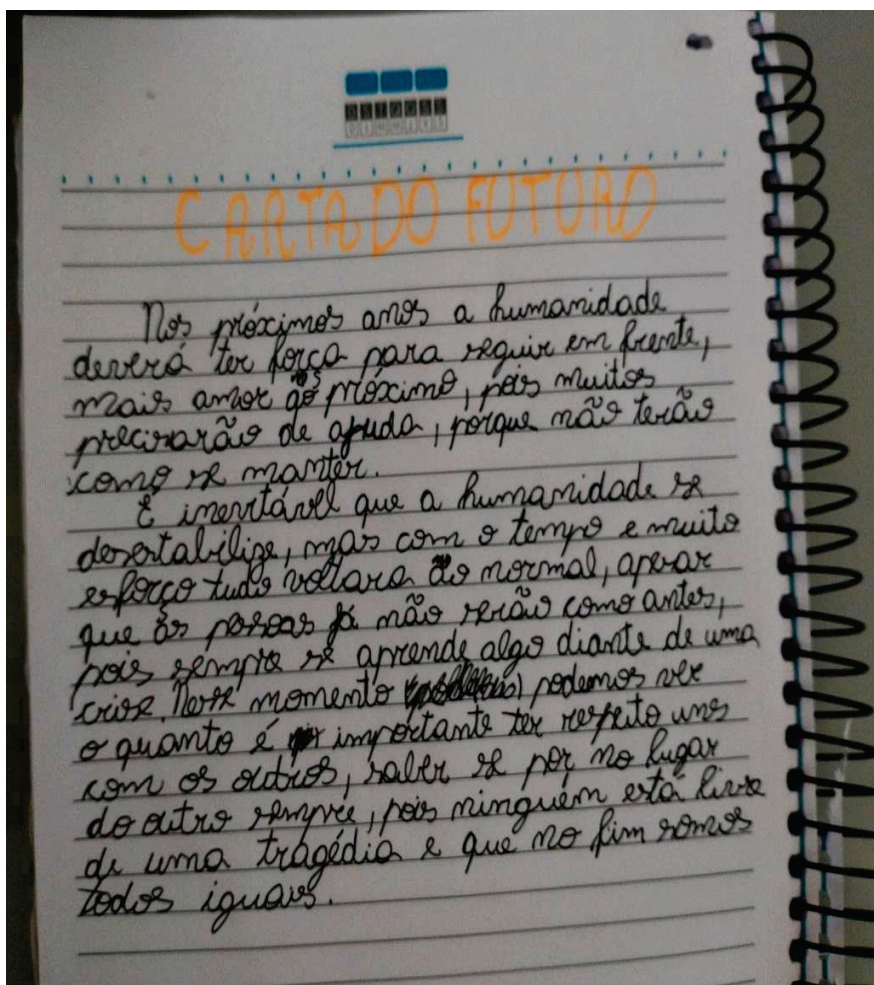 CARTA DO FUTURO
Nos próximos anos a humanidade
deverá ter força para seguir em frente,
mais amor aos próximo, pois muitos
precisarão de ajuda, porque não terão
como se manter.
É inevitável que a humanidade se
desestabilize, mas com o tempo e muito
esforço tudo voltara ao normal, apesar
que as pessoas já não serão como antes,
pois sempre se aprende algo diante de uma
crise. Nesse momento podemos ver
o quanto é importante ter respeito uns
com os outros, saber se por no lugar
do outro sempre, pois ninguém está livre
de uma tragédia e que no fim somos
todos iguais.